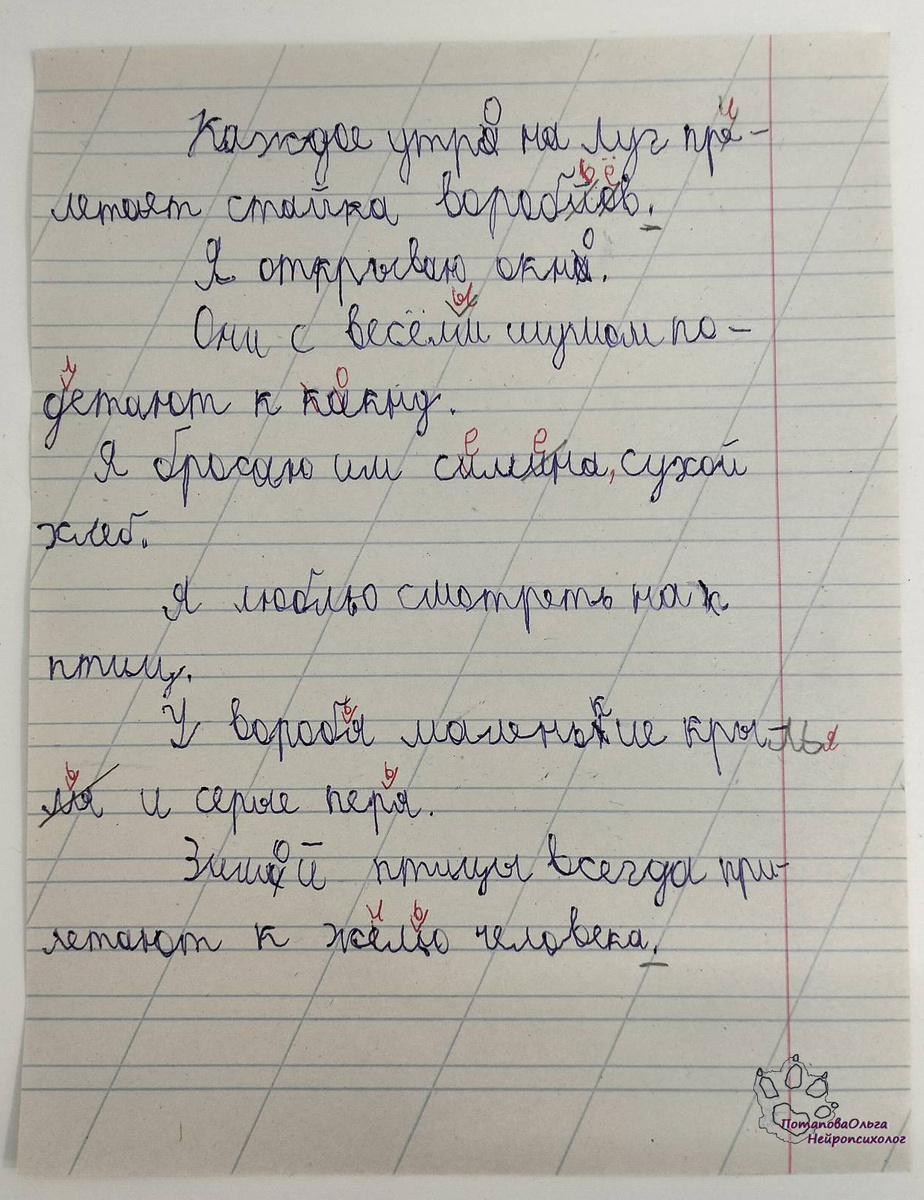 Каждое утро на луг при-
летает стайка воробьёв.
Я открываю окно.
Они с весёлым шумом по-
летают к окну.
Я бросаю им семена, сухой
хлеб.
Я люблю смотреть на
птиц.
У воробья маленькие крылья
и серые перья.
Зимой птицы всегда при-
летают к жилью человека.
ПотаповаОльга
Нейропсихолог